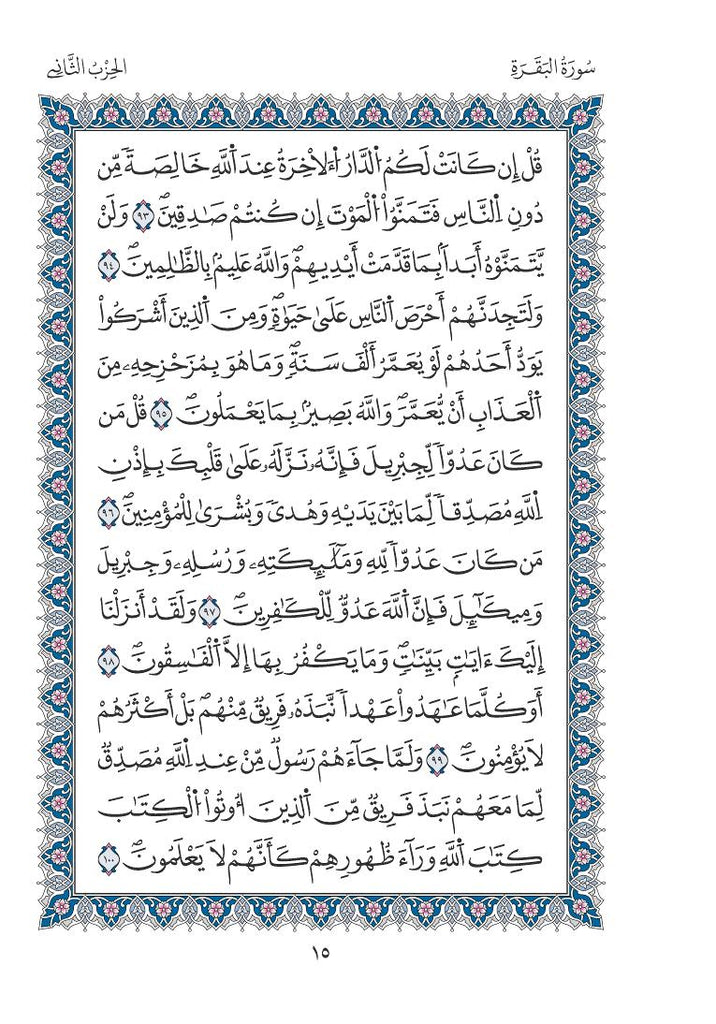 سُورَةُ البَقَرَةِ
الحِزْبُ الثَّانِي
قُلْ إِن كَانَتْ لَكُمُ اُ۬لدَّارُ اُ۬لَاخِرَةُ عِندَ اَ۬للَّهِ خَالِصَةٗ مِّن
دُونِ اِ۬لنَّاسِ فَتَمَنَّوُاْ اُ۬لْمَوْتَ إِن كُنتُمْ صَٰدِقِينَۖ ٩٣ وَلَنْ
يَّتَمَنَّوْهُ أَبَداَۢ بِمَا قَدَّمَتَ اَيْدِيهِمْۖ وَاللَّهُ عَلِيمُۢ بِالظَّٰلِمِينَۖ ٩٤
وَلَتَجِدَنَّهُمُۥ أَحْرَصَ اَ۬لنَّاسِ عَلَىٰ حَيَوٰةٖۖ وَمِنَ اَ۬لذِينَ أَشْرَكُواْ
يَوَدُّ أَحَدُهُمْ لَوْ يُعَمَّرُ أَلْفَ سَنَةٖۖ وَمَا هُوَ بِمُزَحْزِحِهِۦ مِنَ
اَ۬لْعَذَابِ أَنْ يُّعَمَّرَۖ وَاللَّهُ بَصِيرُۢ بِمَا يَعْمَلُونَۖ ٩٥ قُلْ مَن
كَانَ عَدُوّاٗ لِّجِبْرِيلَ فَإِنَّهُۥ نَزَّلَهُۥ عَلَىٰ قَلْبِكَ بِإِذْنِ
اِ۬للَّهِ مُصَدِّقاٗ لِّمَا بَيْنَ يَدَيْهِ وَهُدىٗ وَبُشْرَىٰ لِلْمُؤْمِنِينَۖ ٩٦
مَن كَانَ عَدُوّاٗ لِّلهِ وَمَلَٰٓئِكَتِهِۦ وَرُسُلِهِۦ وَجِبْرِيلَ
وَمِيكَٰٓئِلَ فَإِنَّ اَ۬للَّهَ عَدُوّٞ لِّلْكَٰفِرِينَۖ ٩٧ وَلَقَدْ أَنزَلْنَا
إِلَيْكَ ءَايَٰتِۢ بَيِّنَٰتٖۖ وَمَا يَكْفُرُ بِهَا إِلَّا اَ۬لْفَٰسِقُونَۖ ٩٨
أَوَكُلَّمَا عَٰهَدُواْ عَهْداٗ نَّبَذَهُۥ فَرِيقٞ مِّنْهُمۖ بَلْ أَكْثَرُهُمْ
لَا يُؤْمِنُونَۖ ٩٩ وَلَمَّا جَآءَهُمْ رَسُولٞ مِّنْ عِندِ اِ۬للَّهِ مُصَدِّقٞ
لِّمَا مَعَهُمْ نَبَذَ فَرِيقٞ مِّنَ اَ۬لذِينَ أُوتُواْ اُ۬لْكِتَٰبَ
كِتَٰبَ اَ۬للَّهِ وَرَآءَ ظُهُورِهِمْ كَأَنَّهُمْ لَا يَعْلَمُونَۖ ١٠٠
١٥